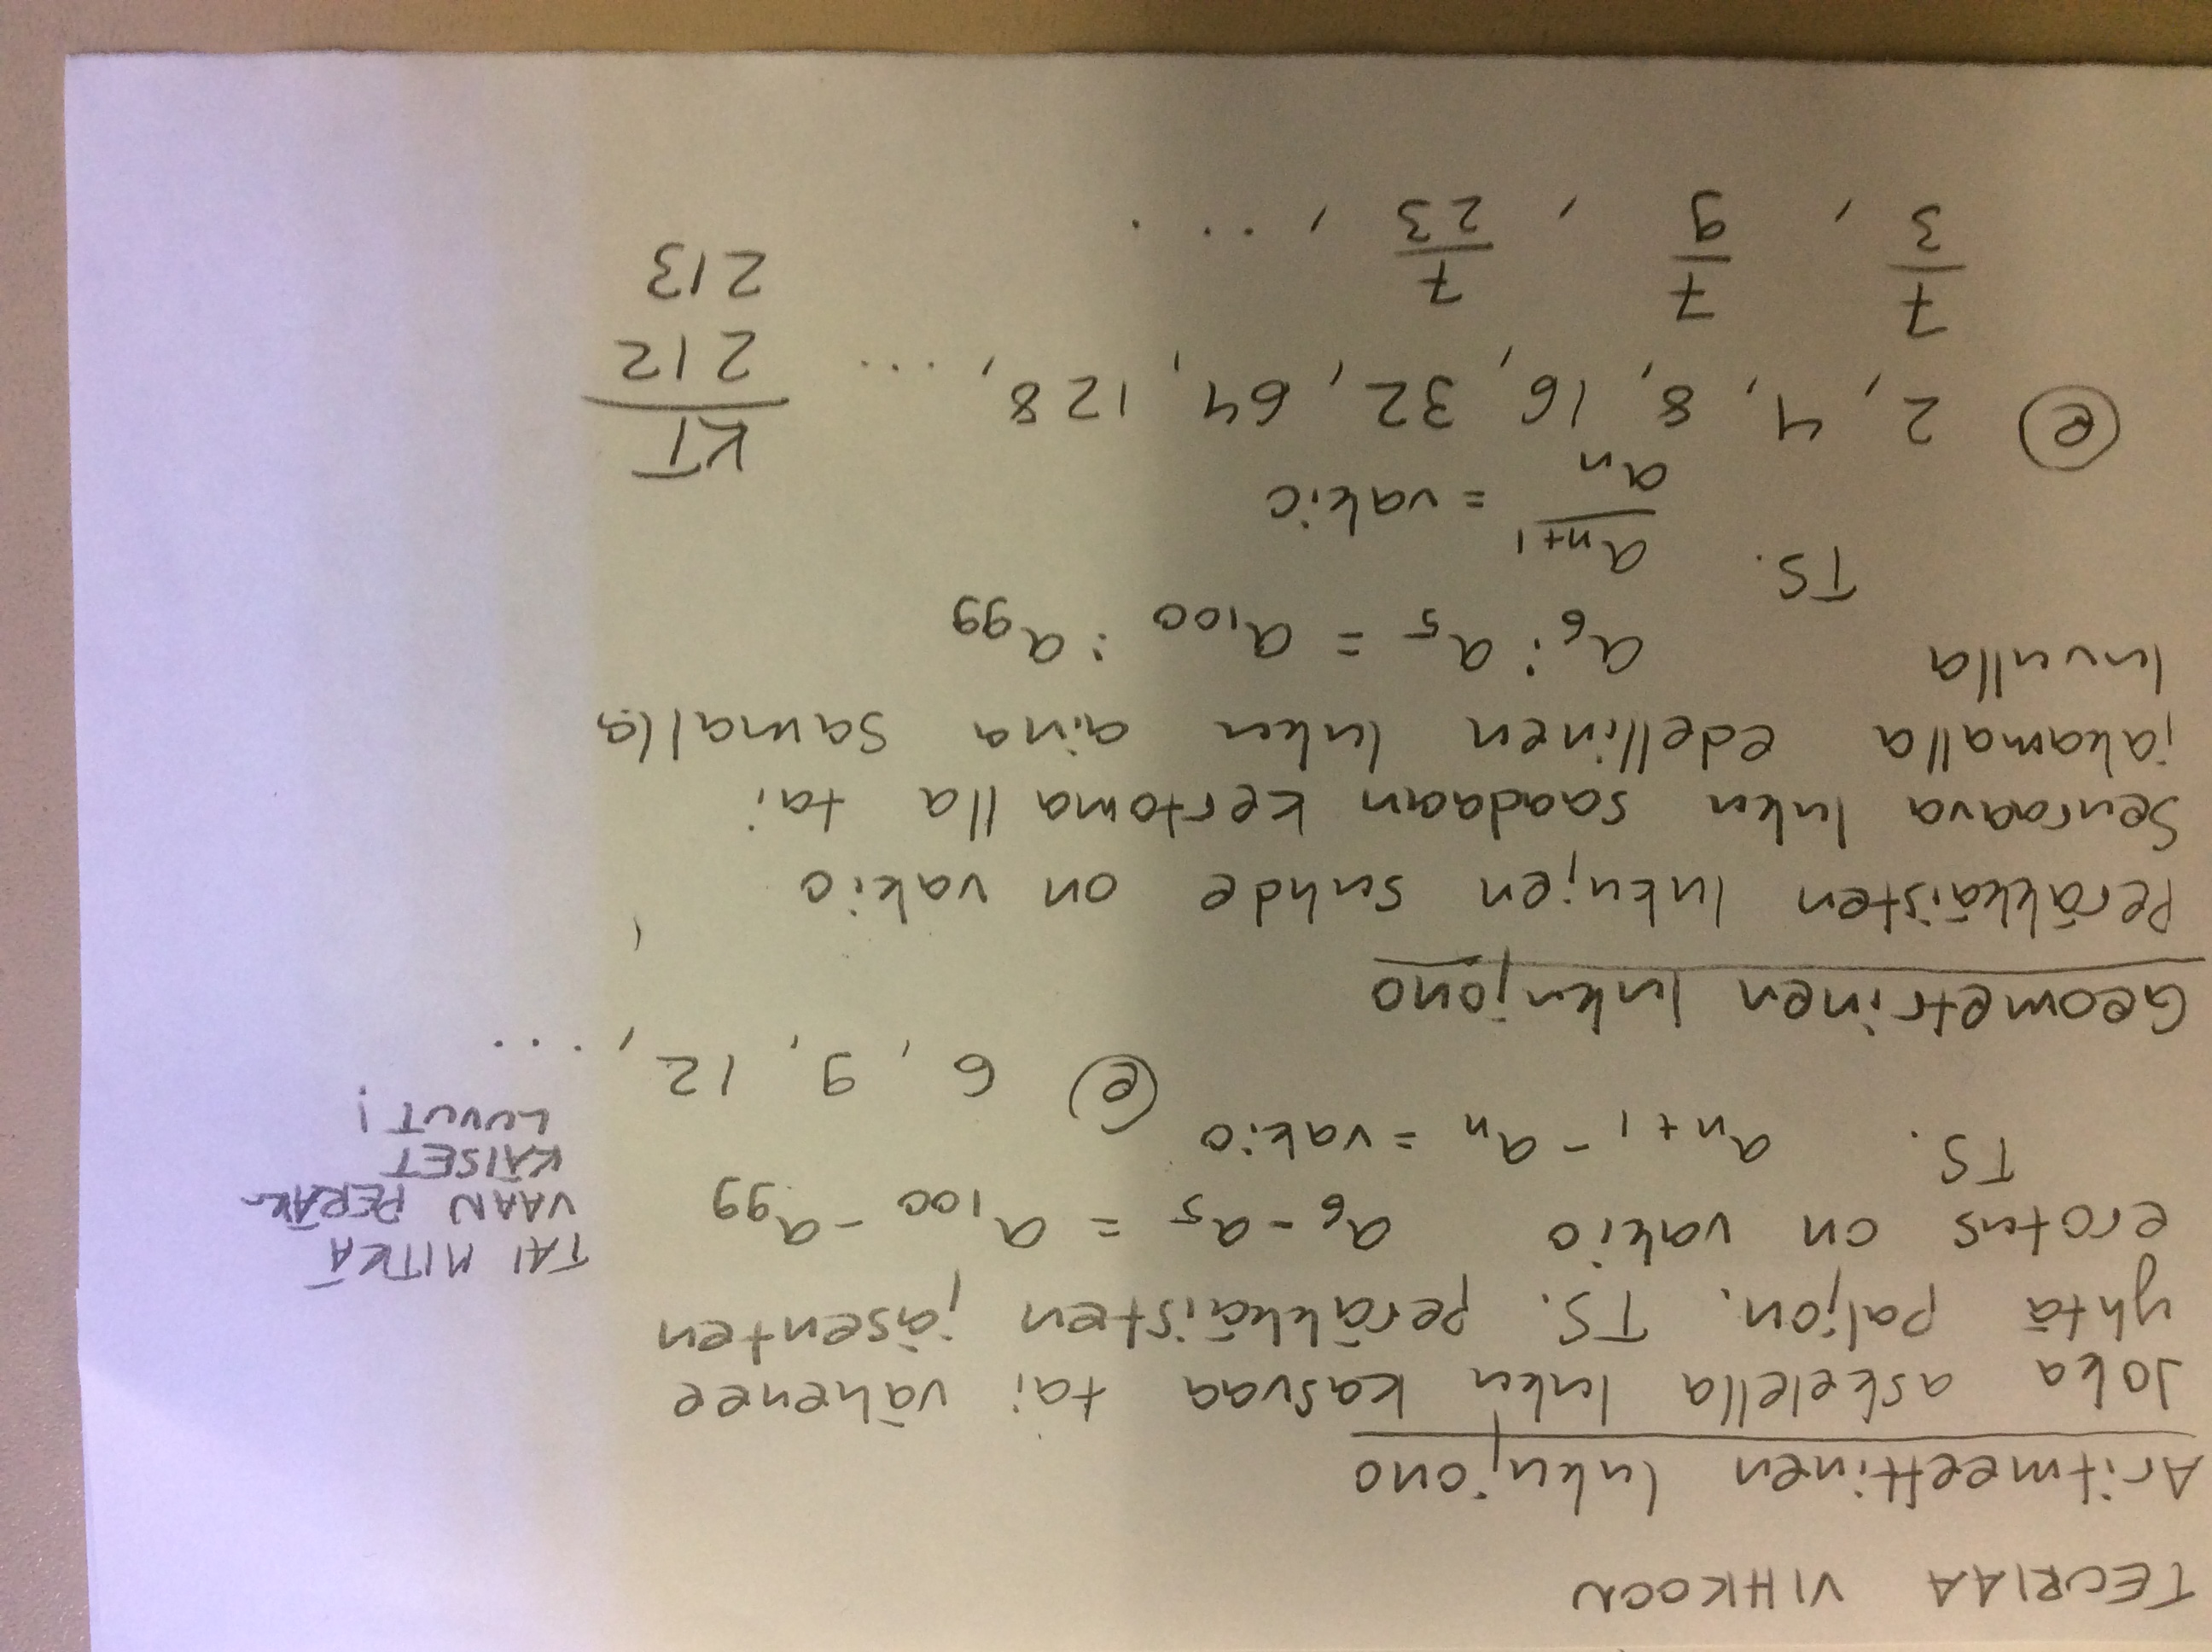 TEORIAA VIHKOON
Aritmeettinen lukujono
Joka askelella luku kasvaa tai vähenee
yhtä paljon. TS. peräkkäisten jäsenten
erotus on vakio a₆ - a₅ = a₁₀₀ - a₉₉
TAI MITKÄ
VAAN PERÄK-
KÄISET
LUVUT!
TS. aₙ₊₁ - aₙ = vakio
(e) 6, 9, 12, ...
Geometrinen lukujono
Peräkkäisten lukujen suhde on vakio
Seuraava luku saadaan kertomalla tai
jakamalla edellinen luku aina samalla
luvulla a₆ : a₅ = a₁₀₀ : a₉₉
TS. aₙ₊₁/aₙ = vakio
(e) 2, 4, 8, 16, 32, 64, 128, ...
7/3, 7/9, 7/23, ...
KT
212
213